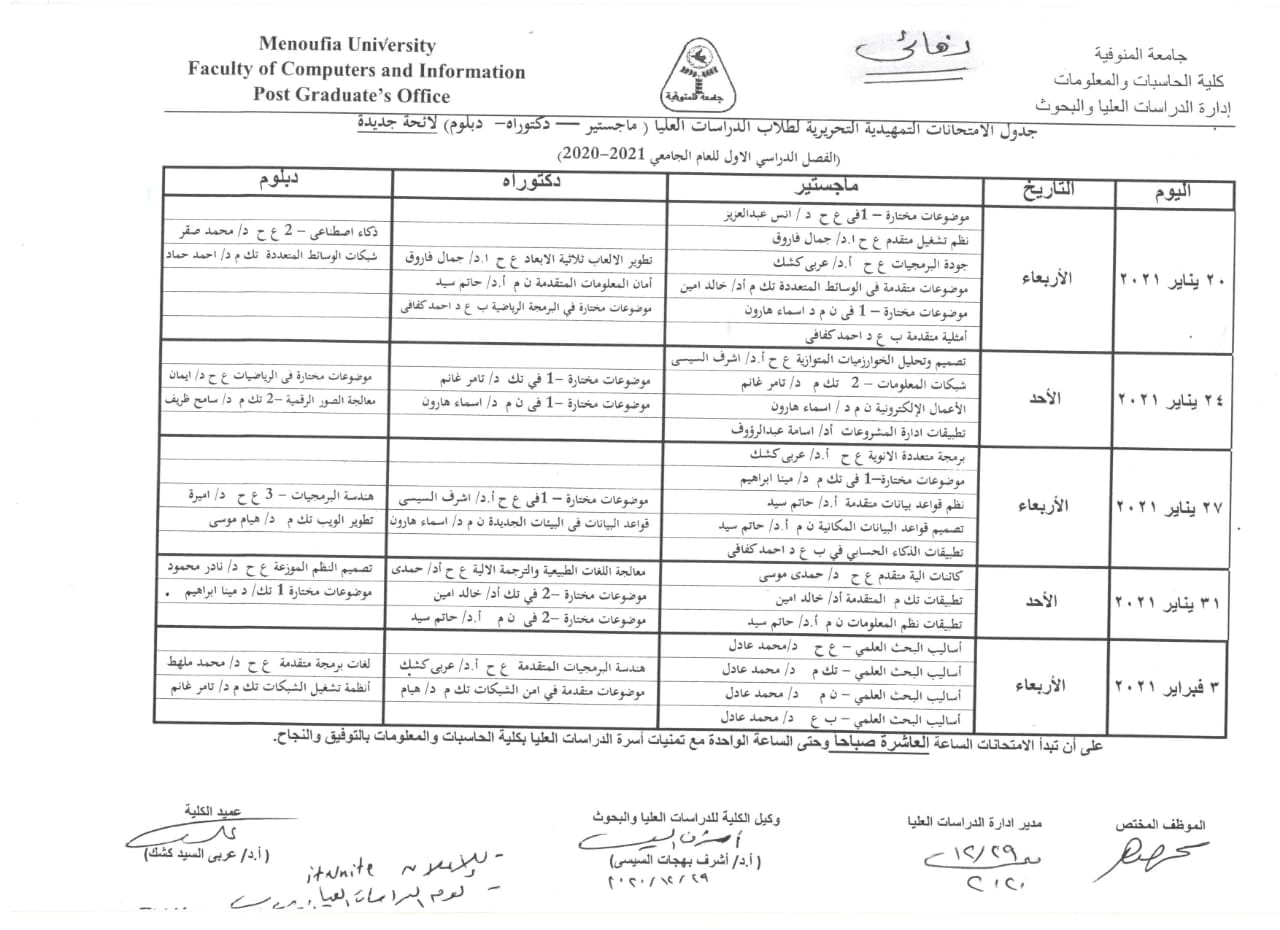 Menoufia University
Faculty of Computers and Information
Post Graduate's Office
جامعة المنوفية
نهائى
جامعة المنوفية
كلية الحاسبات والمعلومات
إدارة الدراسات العليا والبحوث
جدول الامتحانات التمهيدية التحريرية لطلاب الدراسات العليا ( ماجستير — دكتوراه– دبلوم) لائحة جديدة
(الفصل الدراسي الاول للعام الجامعي 2021–2020)
اليوم التاريخ ماجستير دكتوراه دبلوم
٢٠ يناير ٢٠٢١ الأربعاء
موضوعات مختارة – 1فى ع ح د / انس عبدالعزيز
نظم تشغيل متقدم ع ح ا.د/ جمال فاروق
جودة البرمجيات ع ح أ.د/ عربى كشك
موضوعات متقدمة فى الوسائط المتعددة تك م أد/ خالد امين
موضوعات مختارة – 1 فى ن م د اسماء هارون
أمثلية متقدمة ب ع د احمد كفافى
تطوير الالعاب ثلاثية الابعاد ع ح ا.د/ جمال فاروق
أمان المعلومات المتقدمة ن م أ.د/ حاتم سيد
موضوعات مختارة في البرمجة الرياضية ب ع د احمد كفافى
ذكاء اصطناعى – 2 ع ح د/ محمد صقر
شبكات الوسائط المتعددة تك م د/ احمد حماد
٢٤ يناير ٢٠٢١ الأحد
تصميم وتحليل الخوارزميات المتوازية ع ح أ.د/ اشرف السيسى
شبكات المعلومات – 2 تك م د/ تامر غانم
الأعمال الإلكترونية ن م د / اسماء هارون
تطبيقات ادارة المشروعات أد/ اسامة عبدالرؤوف
موضوعات مختارة –1 في تك د/ تامر غانم
موضوعات مختارة –1 فى ن م د/ اسماء هارون
موضوعات مختارة فى الرياضيات ع ح د/ ايمان
معالجة الصور الرقمية –2 تك م د/ سامح ظريف
٢٧ يناير ٢٠٢١ الأربعاء
برمجة متعددة الانوية ع ح أ.د/ عربى كشك
موضوعات مختارة–1 فى تك م د/ مينا ابراهيم
نظم قواعد بيانات متقدمة أ.د/ حاتم سيد
تصميم قواعد البيانات المكانية ن م أ.د/ حاتم سيد
تطبيقات الذكاء الحسابي في ب ع د احمد كفافى
موضوعات مختارة –1فى ع ح أ.د/ اشرف السيسى
قواعد البيانات فى البيئات الجديدة ن م د/ اسماء هارون
هندسة البرمجيات – 3 ع ح د/ اميرة
تطوير الويب تك م د/ هيام موسى
٣١ يناير ٢٠٢١ الأحد
كائنات الية متقدم ع ح د/ حمدى موسى
تطبيقات تك م المتقدمة أد/ خالد امين
تطبيقات نظم المعلومات ن م أ.د/ حاتم سيد
معالجة اللغات الطبيعية والترجمة الالية ع ح أد/ حمدى
موضوعات مختارة –2 في تك أد/ خالد امين
موضوعات مختارة –2 فى ن م أ.د/ حاتم سيد
تصميم النظم الموزعة ع ح د/ نادر محمود
موضوعات مختارة 1 تك/ د مينا ابراهيم
٣ فبراير ٢٠٢١ الأربعاء
أساليب البحث العلمي – ع ح د/محمد عادل
أساليب البحث العلمي – تك م د/ محمد عادل
أساليب البحث العلمي – ن م د/ محمد عادل
أساليب البحث العلمي – ب ع د/ محمد عادل
هندسة البرمجيات المتقدمة ع ح أ.د/ عربى كشك
موضوعات متقدمة في امن الشبكات تك م د/ هيام
لغات برمجة متقدمة ع ح د/ محمد ملهط
أنظمة تشغيل الشبكات تك م د/ تامر غانم
على أن تبدأ الامتحانات الساعة العاشرة صباحاً وحتى الساعة الواحدة مع تمنيات أسرة الدراسات العليا بكلية الحاسبات والمعلومات بالتوفيق والنجاح.
الموظف المختص
مدير ادارة الدراسات العليا
١٢/٢٩
٢٠٢٠
وكيل الكلية للدراسات العليا والبحوث
(أ.د/ أشرف بهجات السيسى)
٢٠٢٠/١٢/٢٩
عميد الكلية
(أ.د/ عربى السيد كشك)